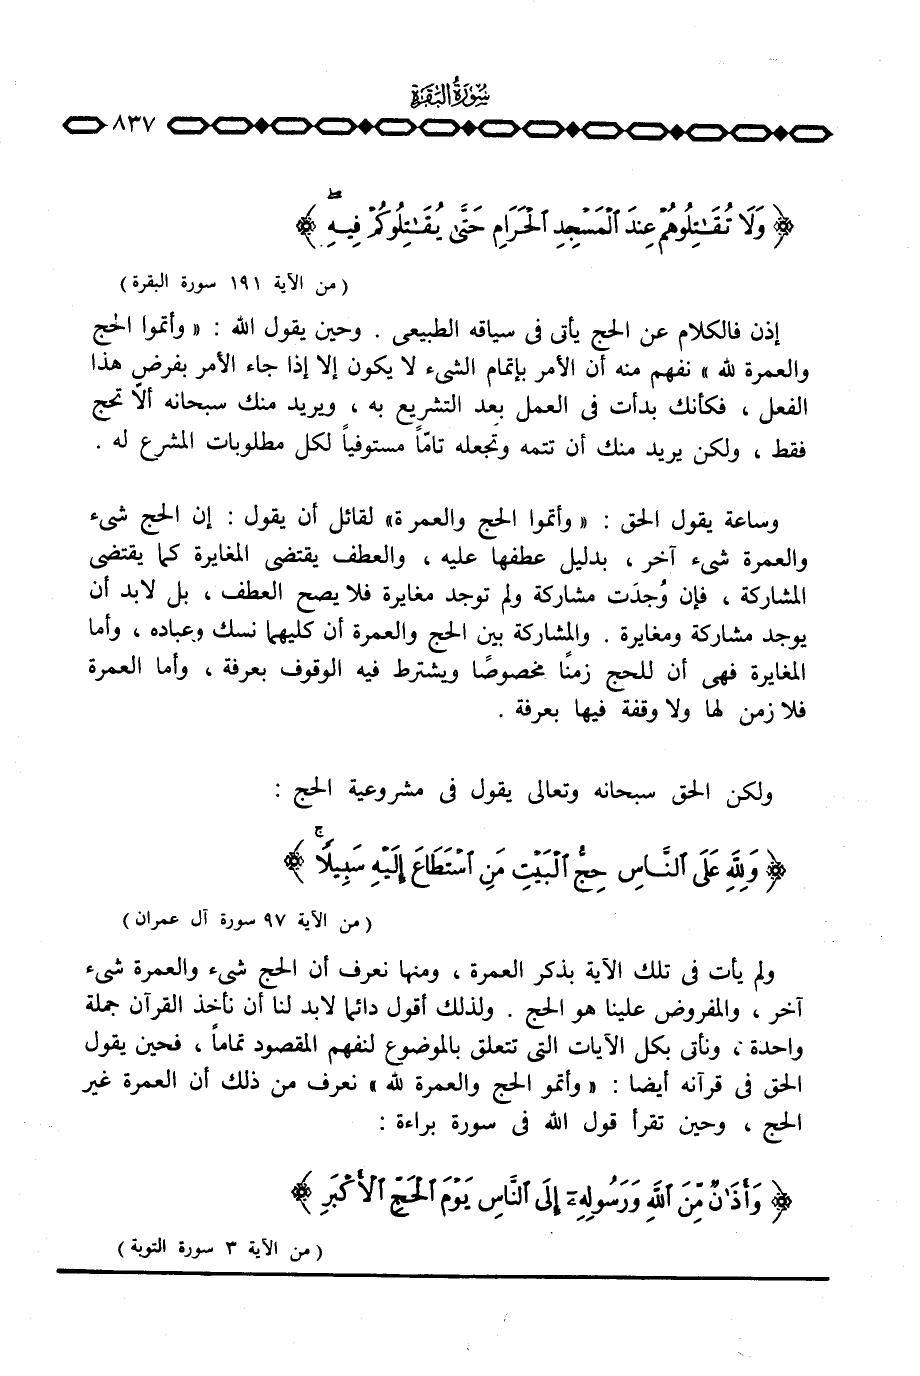 سورة البقرة
٨٣٧
﴿ وَلَا تُقَـٰتِلُوهُمْ عِندَ ٱلْمَسْجِدِ ٱلْحَرَامِ حَتَّىٰ يُقَـٰتِلُوكُمْ فِيهِ ۖ ﴾
( من الآية ١٩١ سورة البقرة )
إذن فالكلام عن الحج يأتى فى سياقه الطبيعى . وحين يقول الله : « وأتموا الحج
والعمرة لله » نفهم منه أن الأمر بإتمام الشىء لا يكون إلا إذا جاء الأمر بفرض هذا
الفعل ، فكأنك بدأت فى العمل بعد التشريع به ، ويريد منك سبحانه ألاّ تحج
فقط ، ولكن يريد منك أن تتمه وتجعله تامّاً مستوفياً لكل مطلوبات المشرع له .
وساعة يقول الحق : « وأتموا الحج والعمرة» لقائل أن يقول : إن الحج شىء
والعمرة شىء آخر ، بدليل عطفها عليه ، والعطف يقتضى المغايرة كما يقتضى
المشاركة ، فإن وُجدَت مشاركة ولم توجد مغايرة فلا يصح العطف ، بل لابد أن
يوجد مشاركة ومغايرة . والمشاركة بين الحج والعمرة أن كليهما نسك وعباده ، وأما
المغايرة فهى أن للحج زمنًا مخصوصًا ويشترط فيه الوقوف بعرفة ، وأما العمرة
فلا زمن لها ولا وقفة فيها بعرفة .
ولكن الحق سبحانه وتعالى يقول فى مشروعية الحج :
﴿ وَلِلَّهِ عَلَى ٱلنَّـاسِ حِجُّ ٱلْبَيْتِ مَنِ ٱسْتَطَاعَ إِلَيْهِ سَبِيلًا ۚ ﴾
( من الآية ٩٧ سورة آل عمران )
ولم يأت فى تلك الآية بذكر العمرة ، ومنها نعرف أن الحج شىء والعمرة شىء
آخر ، والمفروض علينا هو الحج . ولذلك أقول دائما لابد لنا أن نأخذ القرآن جملة
واحدة ، ونأتى بكل الآيات التى تتعلق بالموضوع لنفهم المقصود تماماً ، فحين يقول
الحق فى قرآنه أيضا : « وأتمو الحج والعمرة لله » نعرف من ذلك أن العمرة غير
الحج ، وحين تقرأ قول الله فى سورة براءة :
﴿ وَأَذَٰنٌ مِّنَ ٱللَّهِ وَرَسُولِهِۦٓ إِلَى ٱلنَّاسِ يَوْمَ ٱلْحَجِّ ٱلْأَكْبَرِ ﴾
( من الآية ٣ سورة التوبة )